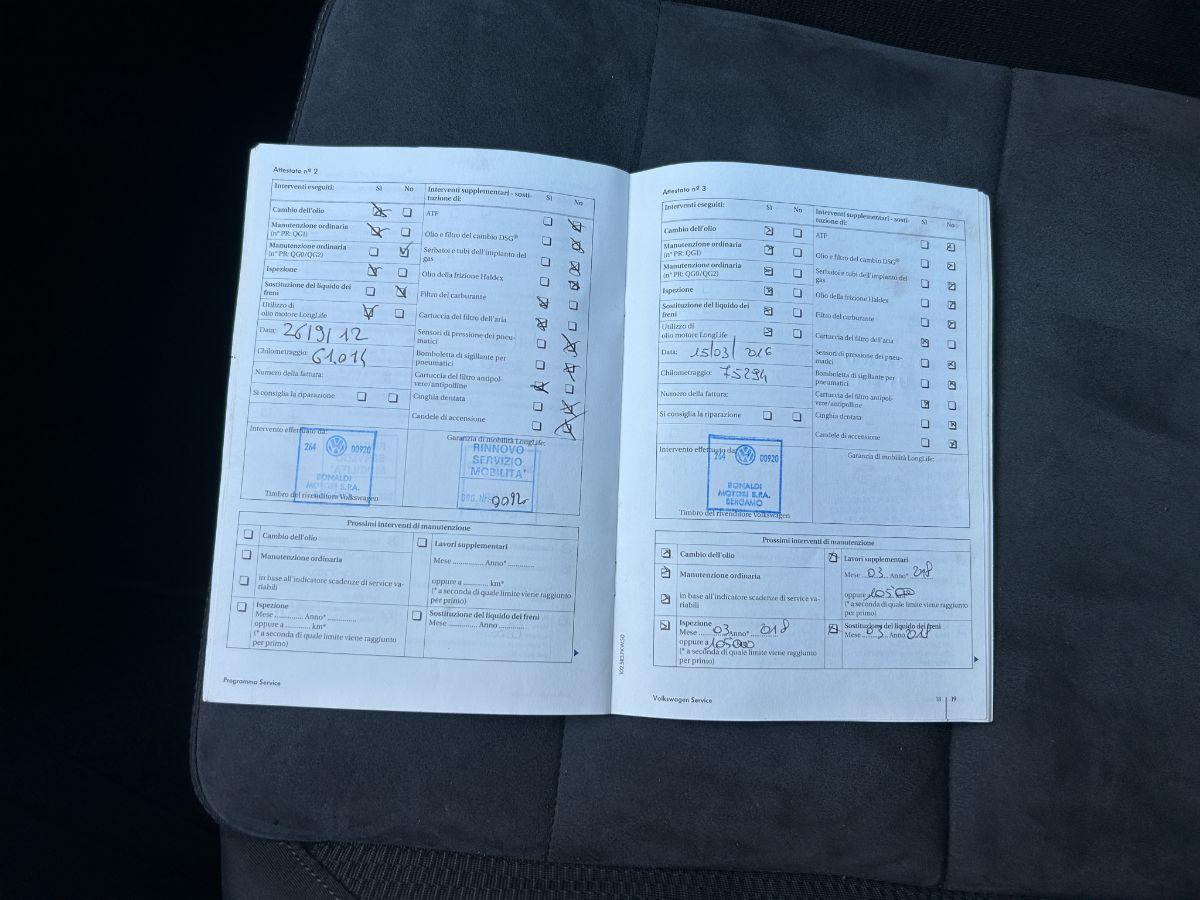 Attestato nº 2
Interventi eseguiti: Sì No
Cambio dell'olio
Manutenzione ordinaria
(nº PR: QG1)
Manutenzione ordinaria
(nº PR: QG0/QG2)
Ispezione
Sostituzione del liquido dei
freni
Utilizzo di
olio motore LongLife
Data: 26/9/12
Chilometraggio: 61.014
Numero della fattura:
Si consiglia la riparazione
Interventi supplementari - sosti-
tuzione di: Sì No
ATF
Olio e filtro del cambio DSG®
Serbatoi e tubi dell'impianto del
gas
Olio della frizione Haldex
Filtro del carburante
Cartuccia del filtro dell'aria
Sensori di pressione dei pneu-
matici
Bomboletta di sigillante per
pneumatici
Cartuccia del filtro antipol-
vere/antipolline
Cinghia dentata
Candele di accensione
Intervento effettuato da:
264 00920
BONALDI
MOTORI S.P.A.
Timbro del rivenditore Volkswagen
Garanzia di mobilità LongLife:
RINNOVO
SERVIZIO
MOBILITA'
ORG. NR. 0092
Prossimi interventi di manutenzione
Cambio dell'olio
Manutenzione ordinaria
in base all'indicatore scadenze di service va-
riabili
Lavori supplementari
Mese ............ Anno* ............
oppure a ............ km*
(* a seconda di quale limite viene raggiunto
per primo)
Ispezione
Mese ............ Anno* ............
oppure a ............ km*
(* a seconda di quale limite viene raggiunto
per primo)
Sostituzione del liquido dei freni
Mese ............ Anno ............
Programma Service
Attestato nº 3
Interventi eseguiti: Sì No
Cambio dell'olio
Manutenzione ordinaria
(nº PR: QG1)
Manutenzione ordinaria
(nº PR: QG0/QG2)
Ispezione
Sostituzione del liquido dei
freni
Utilizzo di
olio motore LongLife
Data: 15/03/2016
Chilometraggio: 75294
Numero della fattura:
Si consiglia la riparazione
Interventi supplementari - sosti-
tuzione di: Sì No
ATF
Olio e filtro del cambio DSG®
Serbatoi e tubi dell'impianto del
gas
Olio della frizione Haldex
Filtro del carburante
Cartuccia del filtro dell'aria
Sensori di pressione dei pneu-
matici
Bomboletta di sigillante per
pneumatici
Cartuccia del filtro antipol-
vere/antipolline
Cinghia dentata
Candele di accensione
Intervento effettuato da:
264 00920
BONALDI
MOTORI S.P.A.
BERGAMO
Timbro del rivenditore Volkswagen
Garanzia di mobilità LongLife:
Prossimi interventi di manutenzione
Cambio dell'olio
Manutenzione ordinaria
in base all'indicatore scadenze di service va-
riabili
Lavori supplementari
Mese 03 Anno* 018
oppure a 105000
(* a seconda di quale limite viene raggiunto
per primo)
Ispezione
Mese 03 Anno* 018
oppure a 105000
(* a seconda di quale limite viene raggiunto
per primo)
Sostituzione del liquido dei freni
Mese 03 Anno 018
Volkswagen Service
18 19